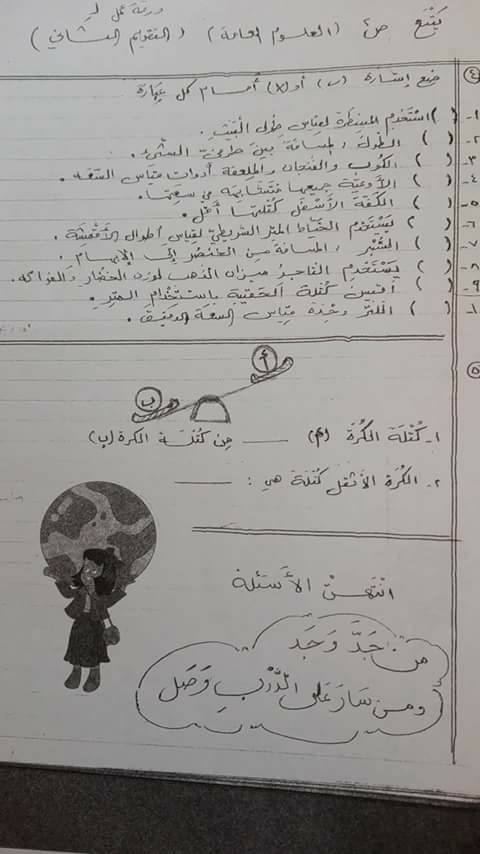 ورقة عمل لـ
يتبع ص٤ (العلوم العامة) (التقويم الثاني)
٤) ضع إشارة (✓) أو (x) أمام كل عبارة
١- ( ) أستخدم المسطرة لقياس طول البيت.
٢- ( ) الطول: المسافة بين طرفي الشيء.
٣- ( ) الكوب والفنجان والملعقة أدوات قياس السعة.
٤- ( ) الأوعية جميعها متشابهة في سعتها.
٥- ( ) الكفة الأسفل كتلتها أقل.
٦- ( ) يستخدم الخياط المتر الشريطي لقياس أطوال الأقمشة.
٧- ( ) الشبر: المسافة من الخنصر إلى الإبهام.
٨- ( ) يستخدم التاجر ميزان الذهب لوزن الخضار والفواكه.
٩- ( ) أقيس كتلة الحقيبة باستخدام المتر.
١٠- ( ) اللتر وحدة قياس السعة الدقيق.
٥)
أ
ب
١- كتلة الكرة (أ) ____ من كتلة الكرة (ب)
٢- الكرة الأثقل كتلة هي: ____
انتهت الأسئلة
من جَدَّ وَجَد
ومن سَارَ عَلى الدَّرْبِ وَصَل